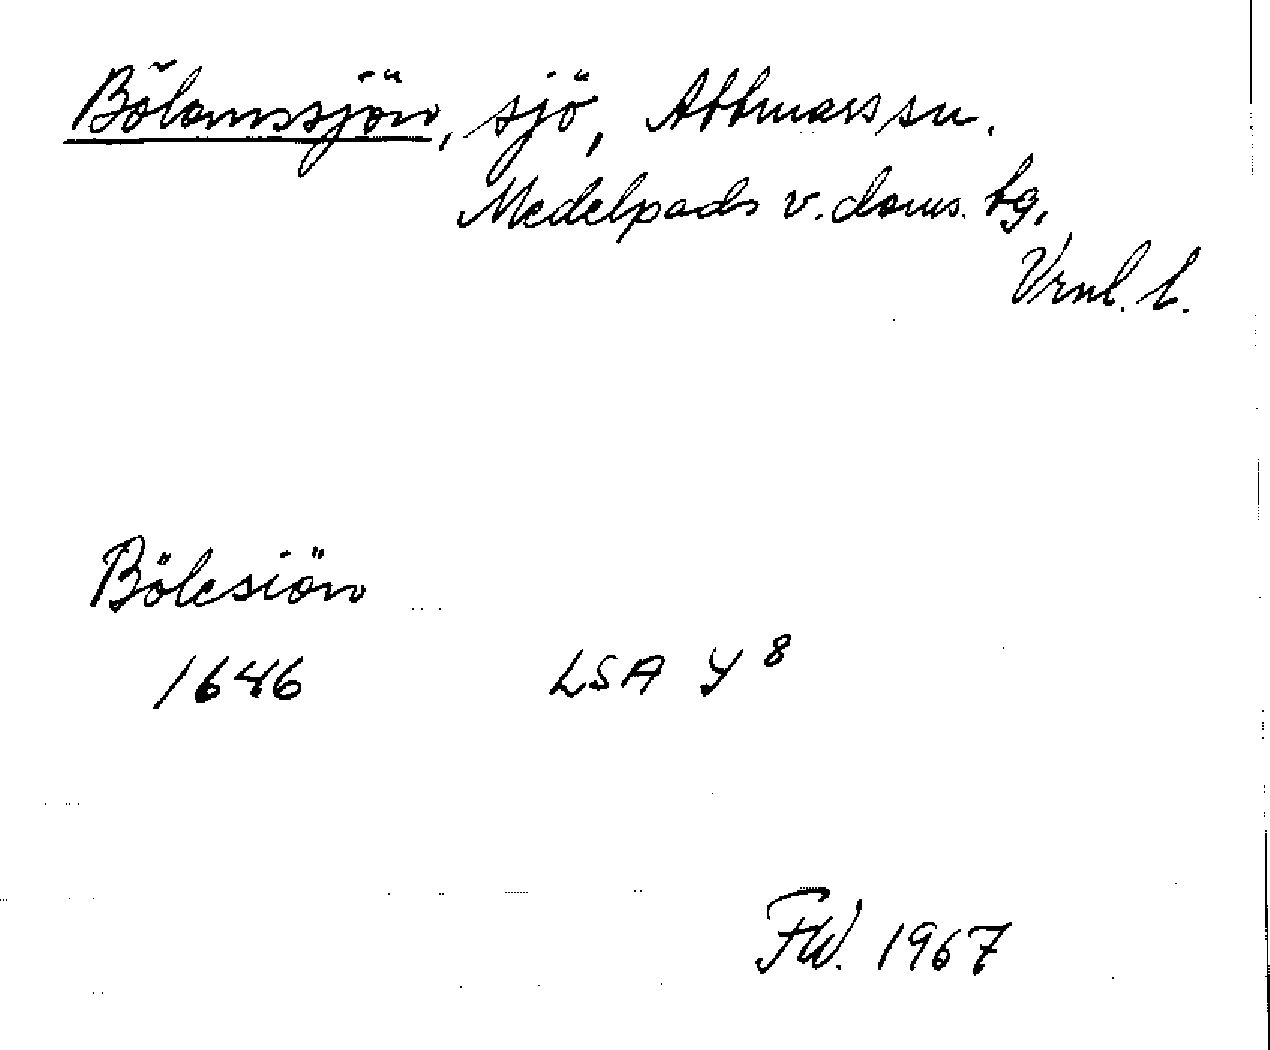 Bölamssjön, sjö, Attmars sn.
Medelpads v. doms. tg,
Vrnl. l.
Bölesiön
1646 LSA Y 8
FW. 1967